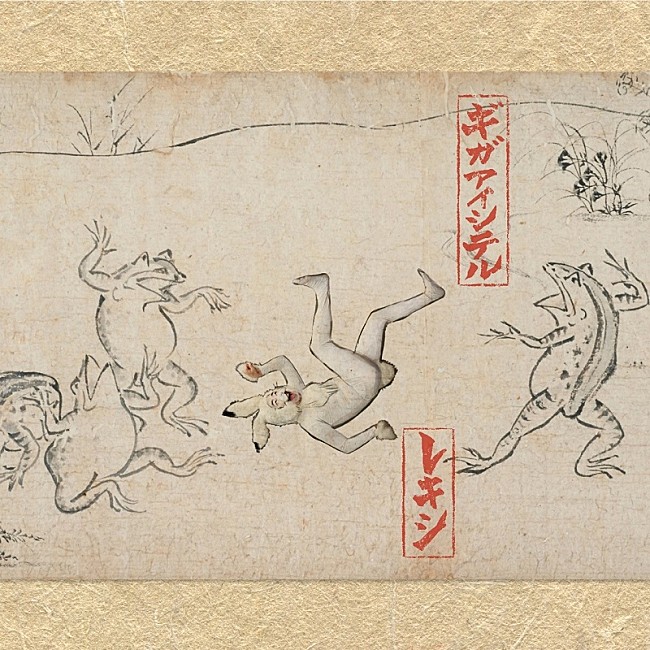 ギガアイシテル
レキシ